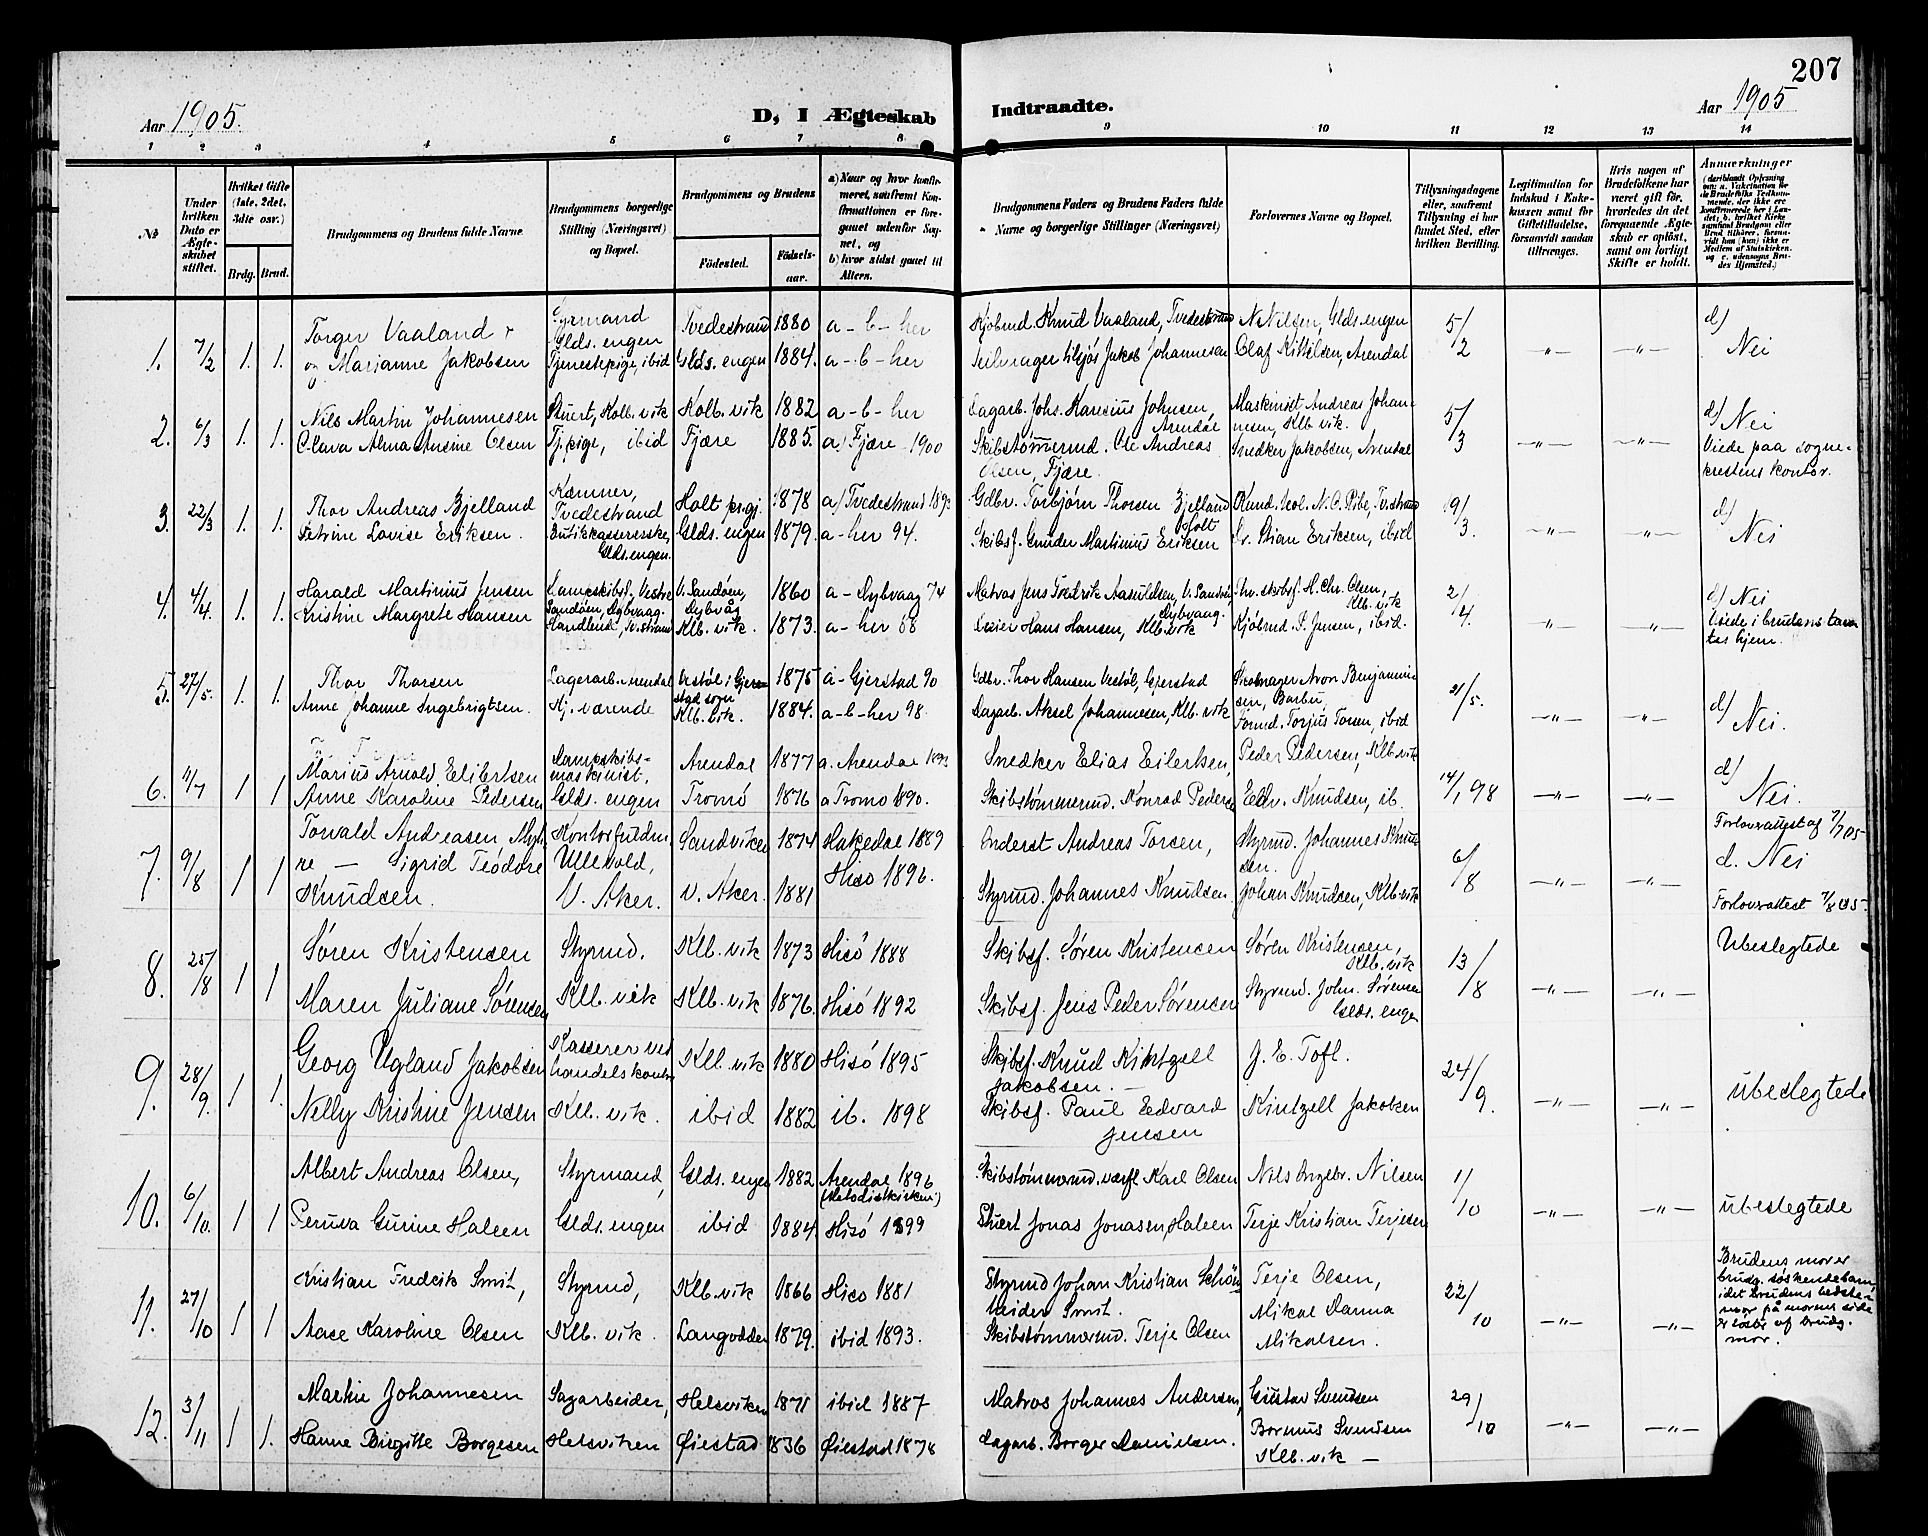 207
Aar 1905.
D, I Ægteskab Indtraadte.
Aar 1905
1 2 3 4 5 6 7 8 9 10 11 12 13 14
№
Under hvilken Dato er Ægteskabet stiftet.
Hvilket Gifte (1ste, 2det, 3die osv.)
Brdg. Brud.
Brudgommens og Brudens fulde Navne
Brudgommens borgerlige Stilling (Næringsvei) og Bopæl.
Brudgommens og Brudens
Fødested. Fødselsaar.
a) Naar og hvor konfirmeret, saafremt Konfirmationen er foregaaet udenfor Sognet, og
b) hvor sidst gaaet til Alters.
Brudgommens Faders og Brudens Faders fulde Navne og borgerlige Stillinger (Næringsvei)
Forlovernes Navne og Bopæl.
Tillysningsdagene eller, saafremt Tillysning ei har fundet Sted, efter hvilken Bevilling.
Legitimation for Indskud i Enkekassen samt for Giftetilladelse, forsaavidt saadan tiltrænges.
Hvis nogen af Brudefolkene har været gift før, hvorledes da det foregaaende Ægteskab er opløst, samt om lovligt Skifte er holdt.
Anmærkninger
1. 7/2 1. 1. Torger Vaaland Tvedestrand 1880 a-b-her Kjøbmd. Knud Vaaland, Tvedestrand N. Nilsen, Glds. engen 5/2 -"- -"- d)
Glds. engen
og Marianne Jakobsen Tjenestepige, ibid Glds. engen 1884. a-b-her Jakob Johannesen Olaf Kittilsen, Arendal Nei
2. 6/3 1. 1. Nils Martin Johannesen Stuert, Kolb. vik Kolb. vik 1882 a-b-her Dagarb. Johs. Johnsen, Arendal Maskinist Andreas Johannesen, Klb. vik. 5/3 -"- -"- d) Nei
Olava Alma Ansine Olsen Tj.pige, ibid Fjære 1885. a) Fjære 1900 Skibstømmermd. Ole Andreas Olsen, Fjære. Snedker Jakobsen, Arendal Viede paa sogneprestens kontor.
3. 22/3 1. 1. Thor Andreas Bjelland Kæmner, Tvedestrand Holt prgj. 1878 a) Tvedestrand 189 Gdbr. Torbjørn Thorsen Bjelland Holt N. C. Ribe, Tv.strand 19/3. -"- -"- d)
Petrine Lovise Eriksen. Butikkassererske, Glds. engen. Glds. engen 1879. a-her 94. Skibsf. Gunder Martinius Eriksen Dr. Stian Eriksen, ibid Nei
4. 4/4. 1. 1. Harald Martinius Jensen Dampskibsf. Vestre Sandøen, Dybvaag. V. Sandøen, Dybvåg 1860 a-Dybvaag 74 Matros Jens Fredrik Aasuldsen, V. Sandø, Dybvaag. H. Chr. Olsen, Klb. vik 2/4. -"- -"- d) Nei
Kristine Margrete Hansen Handlend. Tv.strand Klb. vik. 1873. a-her 88 Hans Hansen, Klb. vik Kjøbmd. J. Jensen, ibid. Viede i brudens tantes hjem.
5. 27/5. 1. 1. Thor Thorsen Lagerarb. Arendal Vestøl i Gjerstad sogn 1875 a-Gjerstad 90 Gdbr. Thor Hansen Vestøl, Gjerstad Skomager Aron Benjaminsen, Barbu, 21/5. -"- -"- d)
Anne Johanne Ingebrigtsen. Hj. værende Klb. vik. 1884. a-b-her 98. Dagarb. Aksel Johannesen, Klb. vik Torjus Torsen, ibid Nei.
6. 4/7 1 1 Marius Arnold Eilertsen Dampskibsmaskinist, Arendal 1877 a. Arendal 1893 Snedker Elias Eilertsen, Peder Pedersen, Klb. vik 14/1 98 -"- -"- d)
Anne Karoline Pedersen Glds. engen Tromø 1876 a Tromø 1890. Skibstømmermd. Konrad Pedersen Edv. Knudsen, ib. Nei.
7. 9/8 1 1 Torvald Andreasen Myhre — Kontorfuldm. Ullevold, Sandviken 1874 Hakedal 1889 Andreas Torsen, Styrmd. Johannes Knudsen. 6/8 -"- -"- Forlovattest af 7/7 05
Sigrid Teodore Knudsen. V. Aker. V. Aker. 1881 Hisø 1896. Styrmd. Johannes Knudsen Johan Knudsen, Klb. vik d. Nei
Forlovattest 7/8 05.
8. 25/8 1 1 Søren Kristensen Styrmd. Klb. vik 1873 Hisø 1888 Skibsf. Søren Kristensen Søren Kristensen, Klb. vik 13/8 -"- -"- Ubeslegtede
Maren Juliane Sørensen Klb. vik Klb. vik 1876. Hisø 1892 Skibsf. Jens Peder Sørensen Styrmd. John. Sørensen Glds. engen
9. 28/9. 1 1. Georg Ugland Jakobsen Kasserer ved handelskontor Klb. vik 1880 Hisø 1895 Skibsf. Knud Kintzell Jakobsen. — J. E. Tofl. 24/9. -"- -"- ubeslegtede
Nelly Kristine Jensen Klb. vik. ibid 1882 ib. 1898 Skibsf. Paul Edvard Jensen Kintzell Jakobsen
10. 6/10. 1 1 Albert Andreas Olsen, Styrmand, Glds. engen 1882 Arendal 1896 (Metodistkirken) Skibstømmermd. Karl Olsen Nils Nilsen 1/10 -"- -"- ubeslegtede
Peruva Gurine Halsen Glds. engen ibid 1884. Hisø 1899 Stuert Jonas Jonasen Halsen Terje Kristian Terjesen
11. 27/10 1 1 Kristian Fredrik Smit, Styrmd, Klb. vik 1866 Hisø 1881 Styrmd Johan Kristian Smit. Terje Olsen, 22/10 -"- -"- Brudens mor er brudg. søskendebarn idet brudens bedstemor på morens side er søster af brudg. mor.
Aase Karoline Olsen Klb. vik. Langodden 1879. ibid 1893. Skibstømmermd. Terje Olsen Mikal Danna Mikalsen.
12. 3/11 1 1. Martin Johannesen Sagarbeider, Helsviken 1871 ibid 1887 Matros Johannes Andersen, Gustav Svendsen 29/10 -"- -"-
Hanne Birgitte Borgesen Helsviken Øiestad 1836 Øiestad 1878 Dagarb. Borger Danielsen. Svendsen Klb. vik —